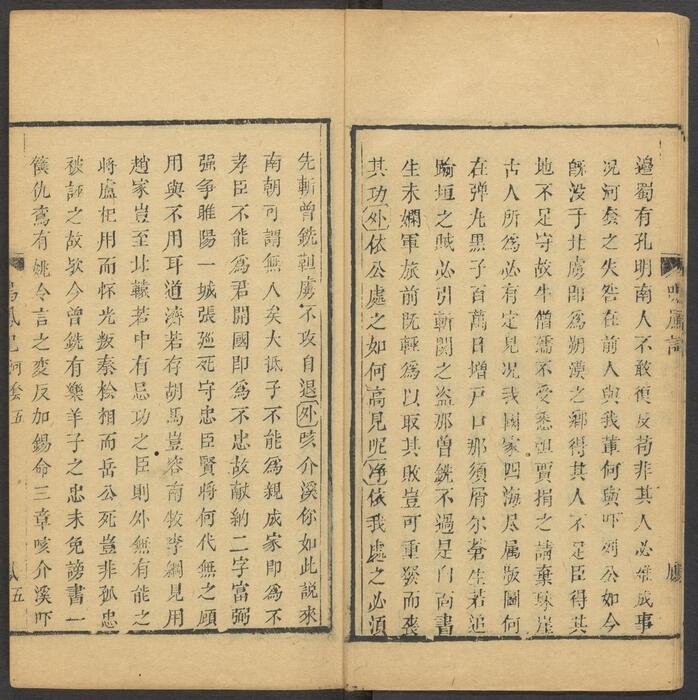 邊蜀有孔明南人不敢復反苟非其人必難成事
况河套之失咎在前人與我輩何與吓列公如今
既没于北虜即為朔漠之鄉得其人不足臣得其
地不足守故牛僧孺不受悉怛賈捐之請棄珠崖
古人所為必有定見况我國家四海尽属版圖何
在弹丸黒子百萬日增戸口那須屑尔蒼生若追
踰垣之贼必引斬関之盗那曽銑不過是白面書
生未嫻軍旅前既輕為以取其敗豈可重發而喪
其功外依公處之如何高見呢净依我處之必須
先斬曽銑韃虜不攻自退外咳介溪你如此説來
南朝可謂無人矣大抵子不能為親成家即為不
孝臣不能為君開國即為不忠故献納二字富弼
强争睢陽一城張廵死守忠臣賢將何代無之顧
用與不用耳道濟若存胡馬豈容南牧李綱見用
趙家豈至北轅若中有忌功之臣則外無有能之
將盧杞用而怀光叛秦桧相而岳公死豈非孤忠
被誣之故欤今曽銑有樂羊子之忠未免謗書一
篋仇鸞有姚令言之変反加錫命三章咳介溪吓
鳴鳳記 河套 五